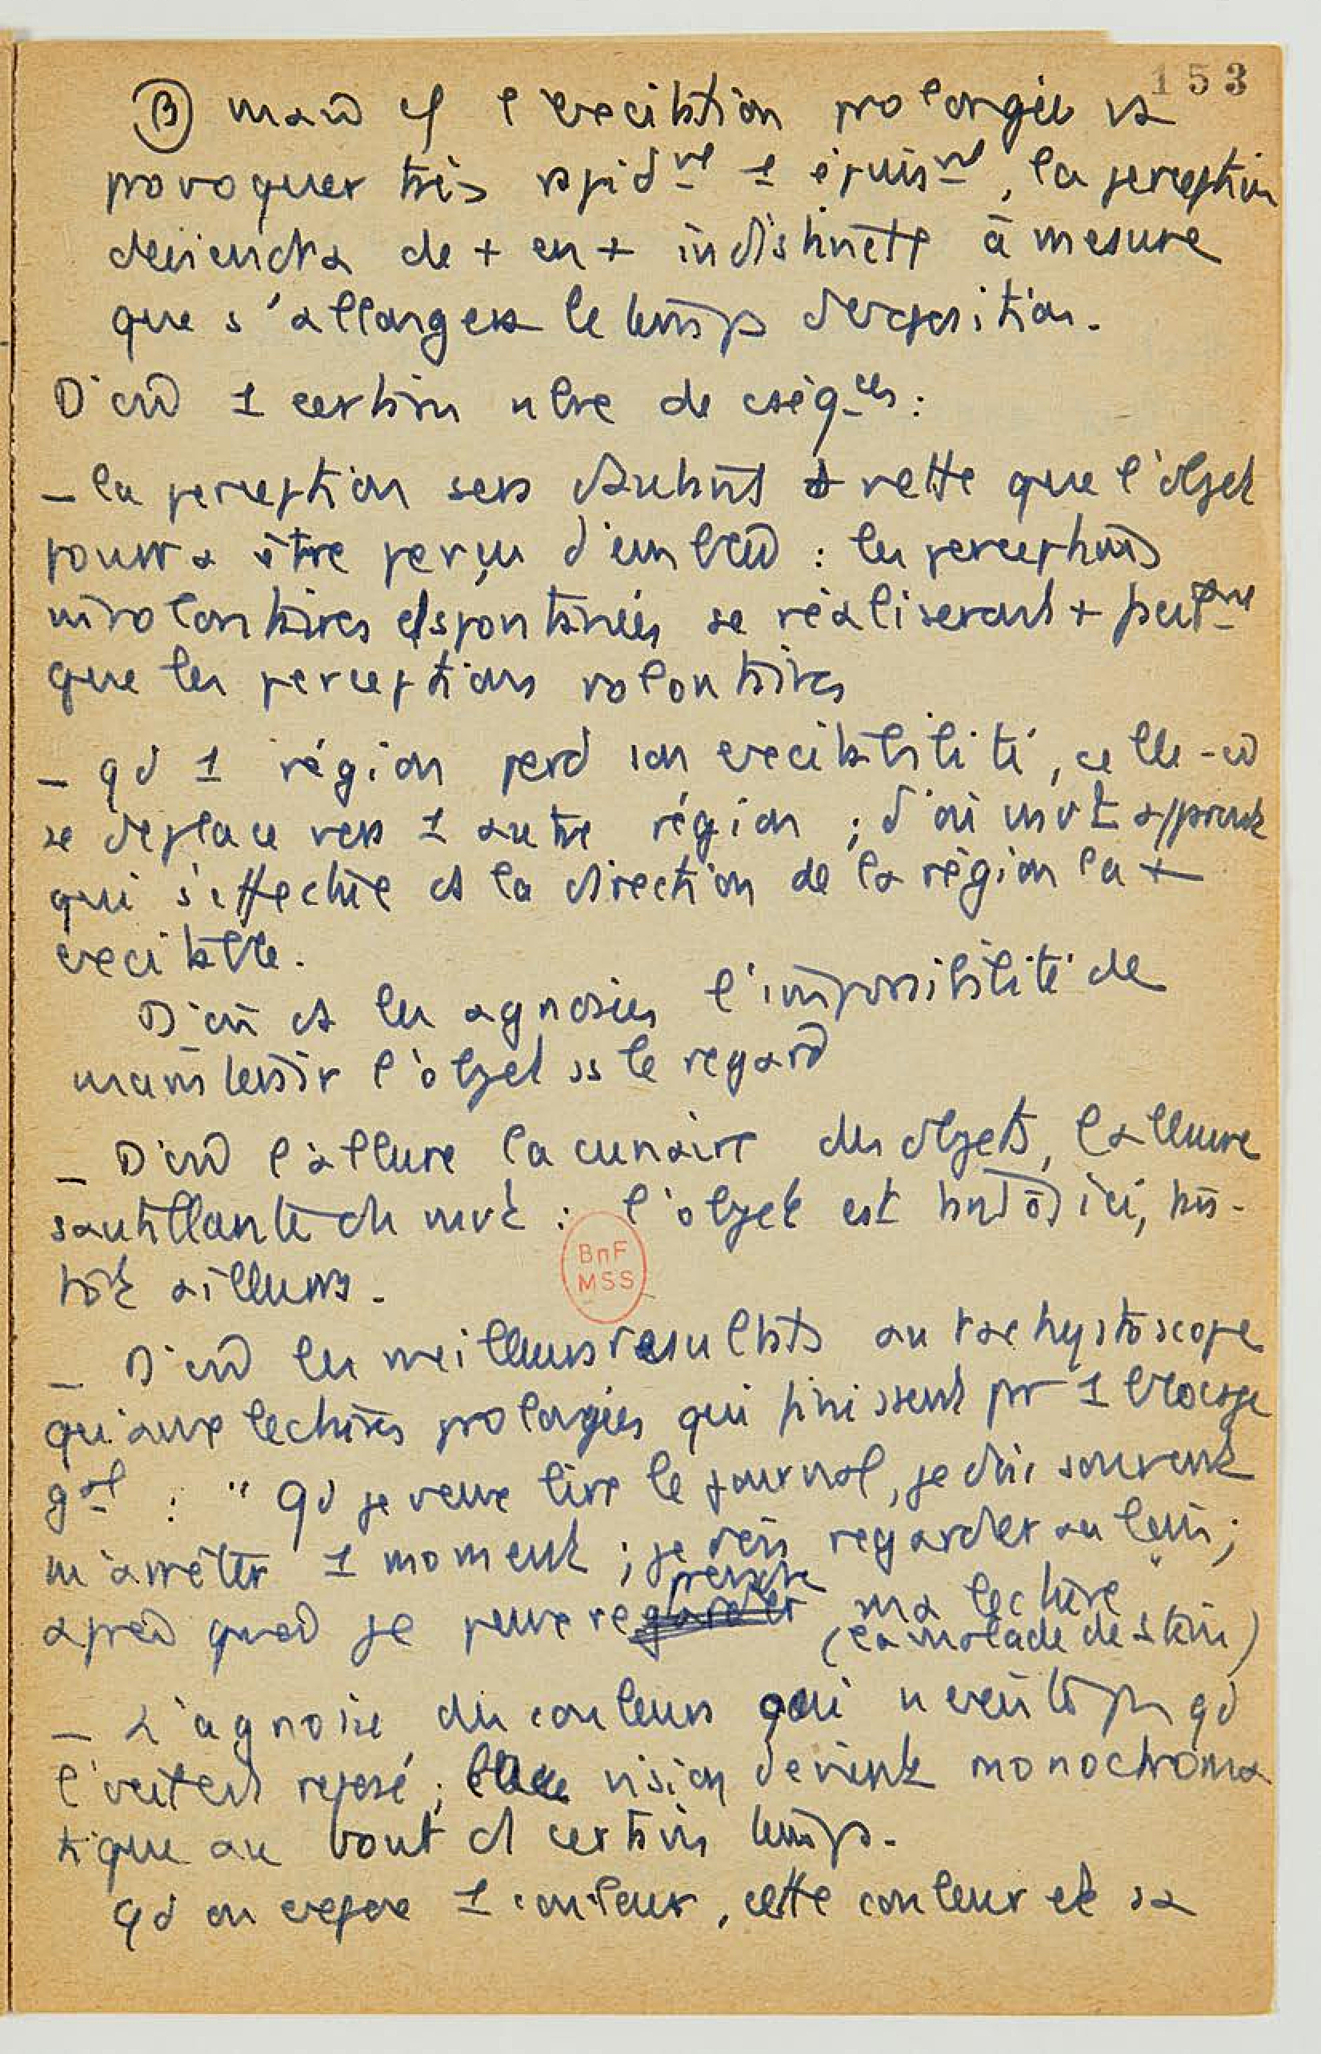 153
(B) mais cf l'excitation prolongée va
provoquer très rapidmt 1 épuismt, la perception
deviendra de + en + indistincte à mesure
que s'allongera le temps d'exposition.
D'où 1 certain nbre de cséqces :
- la perception sera d'autant + nette que l'objet
pourra être perçu d'emblée : les perceptions
involontaires et spontanées se réaliseront +
que les perceptions volontaires
- qd 1 région perd son excitabilité, celle-ci
se déplace vers 1 autre région ; d'où mvt apparent
qui s'effectue ds la direction de la région la +
excitable.
D'où ds les agnosies l'impossibilité de
maintenir l'objet ss le regard
- D'où l'allure lacunaire des objets, l'allure
sautillante du mvt : l'objet est tantôt ici, tan-
tôt ailleurs.
- D'où les meilleurs résultats au tachystoscope
qu'aux lectures prolongées qui finissent par 1 blocage
gal : "Qd je veux lire le journal, je dois souvent
m'arrêter 1 moment ; je dois regarder au loin ;
après quoi je peux reprendre ma lecture"
(la malade de Stein)
- L'agnosie des couleurs qui n'existe pas qd
l'œil est reposé ; vision devient monochroma
tique au bout d certain temps.
Qd on expose 1 couleur, cette couleur et sa
BnF
MSS